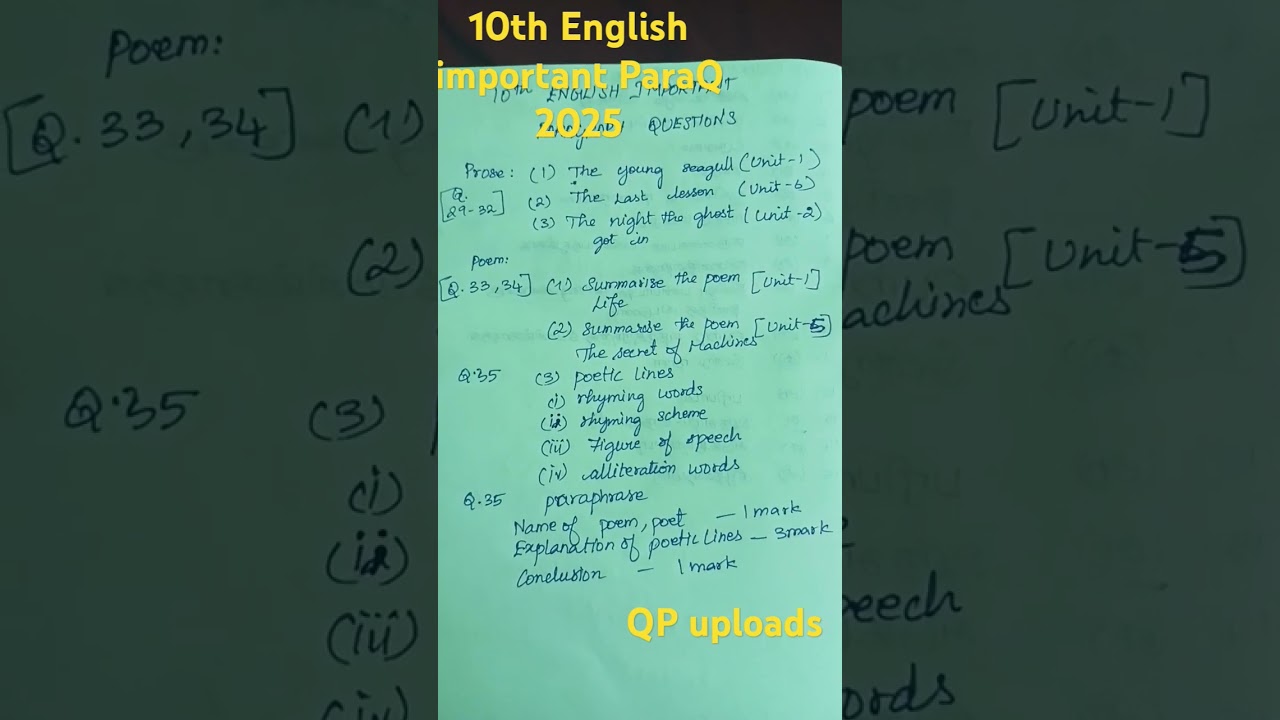 10th English
important ParaQ
2025
10th ENGLISH IMPORTANT
PARAGRAPH QUESTIONS
Prose: (1) The young seagull (Unit-1)
[Q. 29-32] (2) The Last lesson (Unit-6)
(3) The night the ghost (Unit-2)
got in
Poem:
[Q. 33, 34] (1) Summarise the poem [Unit-1]
Life
(2) Summarise the poem [Unit-5]
The secret of Machines
Q.35 (3) poetic lines
(i) rhyming words
(ii) rhyming scheme
(iii) Figure of speech
(iv) alliteration words
Q.35 paraphrase
Name of poem, poet — 1 mark
Explanation of poetic lines — 3mark
Conclusion — 1 mark
QP uploads
Poem:
[Q. 33, 34] (1)
(2)
Q.35 (3)
(i)
(ii)
(iii)
(iv)
poem [Unit-1]
poem [Unit-5]
Machines
peech
ords